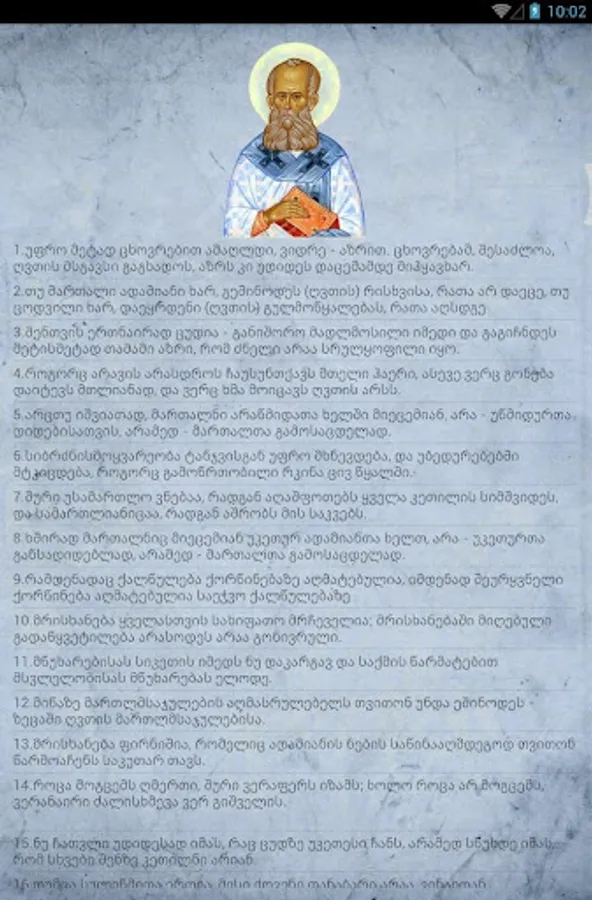 10:02
1.უფრო მეტად ცხოვრებით ამაღლდი, ვიდრე - აზრით. ცხოვრებამ, შესაძლოა,
ღვთის მსგავსი გაგხადოს, აზრს კი უდიდეს დაცემამდე მიჰყავხარ.
2.თუ მართალი ადამიანი ხარ, გეშინოდეს (ღვთის) რისხვისა, რათა არ დაეცე, თუ
ცოდვილი ხარ, დაეყრდენი (ღვთის) გულმოწყალებას, რათა აღსდგე
3.შენთვის ერთნაირად ცუდია - განიშორო მადლმოსილი იმედი და გაგიჩნდეს
მეტისმეტად თამამი აზრი, რომ ძნელი არაა სრულყოფილი იყო.
4.როგორც არავის არასდროს ჩაუსუნთქავს მთელი ჰაერი, ასევე ვერც გონება
დაიტევს მთლიანად, და ვერც ხმა მოიცავს ღვთის არსს.
5.არცთუ იშვიათად, მართალნი არაწმიდათა ხელში მიეცემიან, არა - უწმიდურთა
დიდებისათვის, არამედ - მართალთა გამოსაცდელად.
6.სიბრძნისმოყვარეობა ტანჯვისგან უფრო მხნევდება, და უბედურებებში
მტკიცდება, როგორც გამოწრთობილი რკინა ცივ წყალში.
7.შური უსამართლო ვნებაა, რადგან აღაშფოთებს ყველა კეთილის სიმშვიდეს,
და სამართლიანიცაა, რადგან აშრობს მის საკვებს.
8.ხშირად მართალნიც მიეცემიან უკეთურ ადამიანთა ხელთ, არა - უკეთურთა
განსადიდებლად, არამედ - მართალთა გამოსაცდელად.
9.რამდენადაც ქალწულება ქორწინებაზე აღმატებულია, იმდენად შეურყვნელი
ქორწინება აღმატებულია საეჭვო ქალწულებაზე
10.მრისხანება ყველასთვის სახიფათო მრჩეველია; მრისხანებაში მიღებული
გადაწყვეტილება არასოდეს არაა გონივრული.
11.მწუხარებისას სიკეთის იმედს ნუ დაკარგავ და საქმის წარმატებით
მსვლელობისას მწუხარებას ელოდე.
12.მიწაზე მართლმსაჯულების აღმასრულებელს თვითონ უნდა ეშინოდეს -
ზეცაში ღვთის მართლმსაჯულებისა.
13.მრისხანება ფირნიშია, რომელიც ადამიანის ნების საწინააღმდეგოდ თვითონ
წარმოაჩენს საკუთარ თავს.
14.როცა მოგცემს ღმერთი, შური ვერაფერს იზამს; ხოლო როცა არ მოგცემს,
ვერანაირი ძალისხმევა ვერ გიშველის.
15.ნუ ჩათვლი უდიდესად იმას, რაც ცუდზე უკეთესი ჩანს, არამედ სწუხდე იმას,
რომ სხვები შენზე კეთილნი არიან.